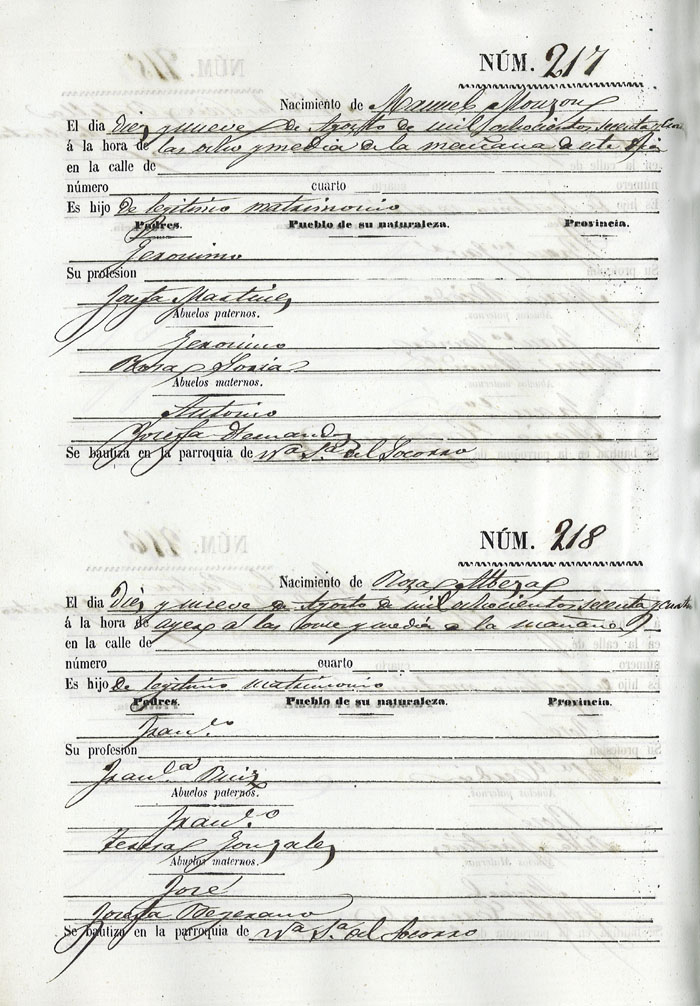 NÚM. 217
Nacimiento de Manuel Monzon
El dia Diez y nueve de Agosto de mil ochocientos sesenta y
á la hora de las ocho y media de la mañana de este dia
en la calle de
número cuarto
Es hijo de legitimo matrimonio
Padres. Pueblo de su naturaleza. Provincia.
Jeronimo
Su profesion
Josefa Martinez
Abuelos paternos.
Jeronimo
Rosa Soria
Abuelos maternos.
Antonio
Josefa Hernandz
Se bautiza en la parroquia de Nª Sª del Socorro
NÚM. 218
Nacimiento de Rosa
El dia Diez y nueve de Agosto de mil ochocientos sesenta y cuatro
á la hora de ayer a las once y media de la mañana
en la calle de
número cuarto
Es hijo de legitimo matrimonio
Padres. Pueblo de su naturaleza. Provincia.
Franco
Su profesion
Franca Ruiz
Abuelos paternos.
Franco
Teresa Gonzalez
Abuelos maternos.
José
Josefa Bejerano
Se bautiza en la parroquia de Nª Sª del Socorro